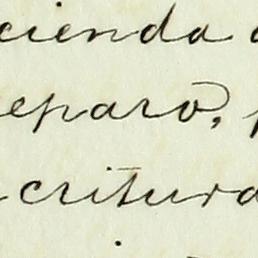 cienda
eparo,
critura